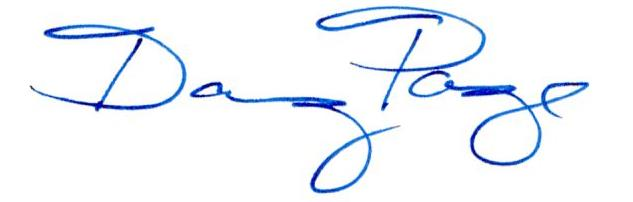 Danny Page